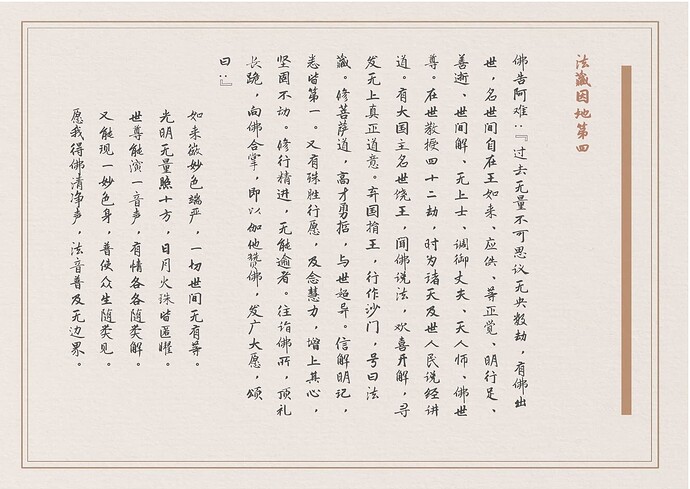 法藏因地第四
佛告阿难：『过去无量不可思议无央数劫，有佛出
世，名世间自在王如来、应供、等正觉、明行足、
善逝、世间解、无上士、调御丈夫、天人师、佛世
尊。在世教授四十二劫，时为诸天及世人民说经讲
道。有大国主名世饶王，闻佛说法，欢喜开解，寻
发无上真正道意。弃国捐王，行作沙门，号曰法
藏。修菩萨道，高才勇哲，与世超异。信解明记，
悉皆第一。又有殊胜行愿，及念慧力，增上其心，
坚固不动。修行精进，无能逾者。往诣佛所，顶礼
长跪，向佛合掌，即以伽他赞佛，发广大愿，颂
曰：』
如来微妙色端严，一切世间无有等。
光明无量照十方，日月火珠皆匿曜。
世尊能演一音声，有情各各随类解。
又能现一妙色身，普使众生随类见。
愿我得佛清净声，法音普及无边界。